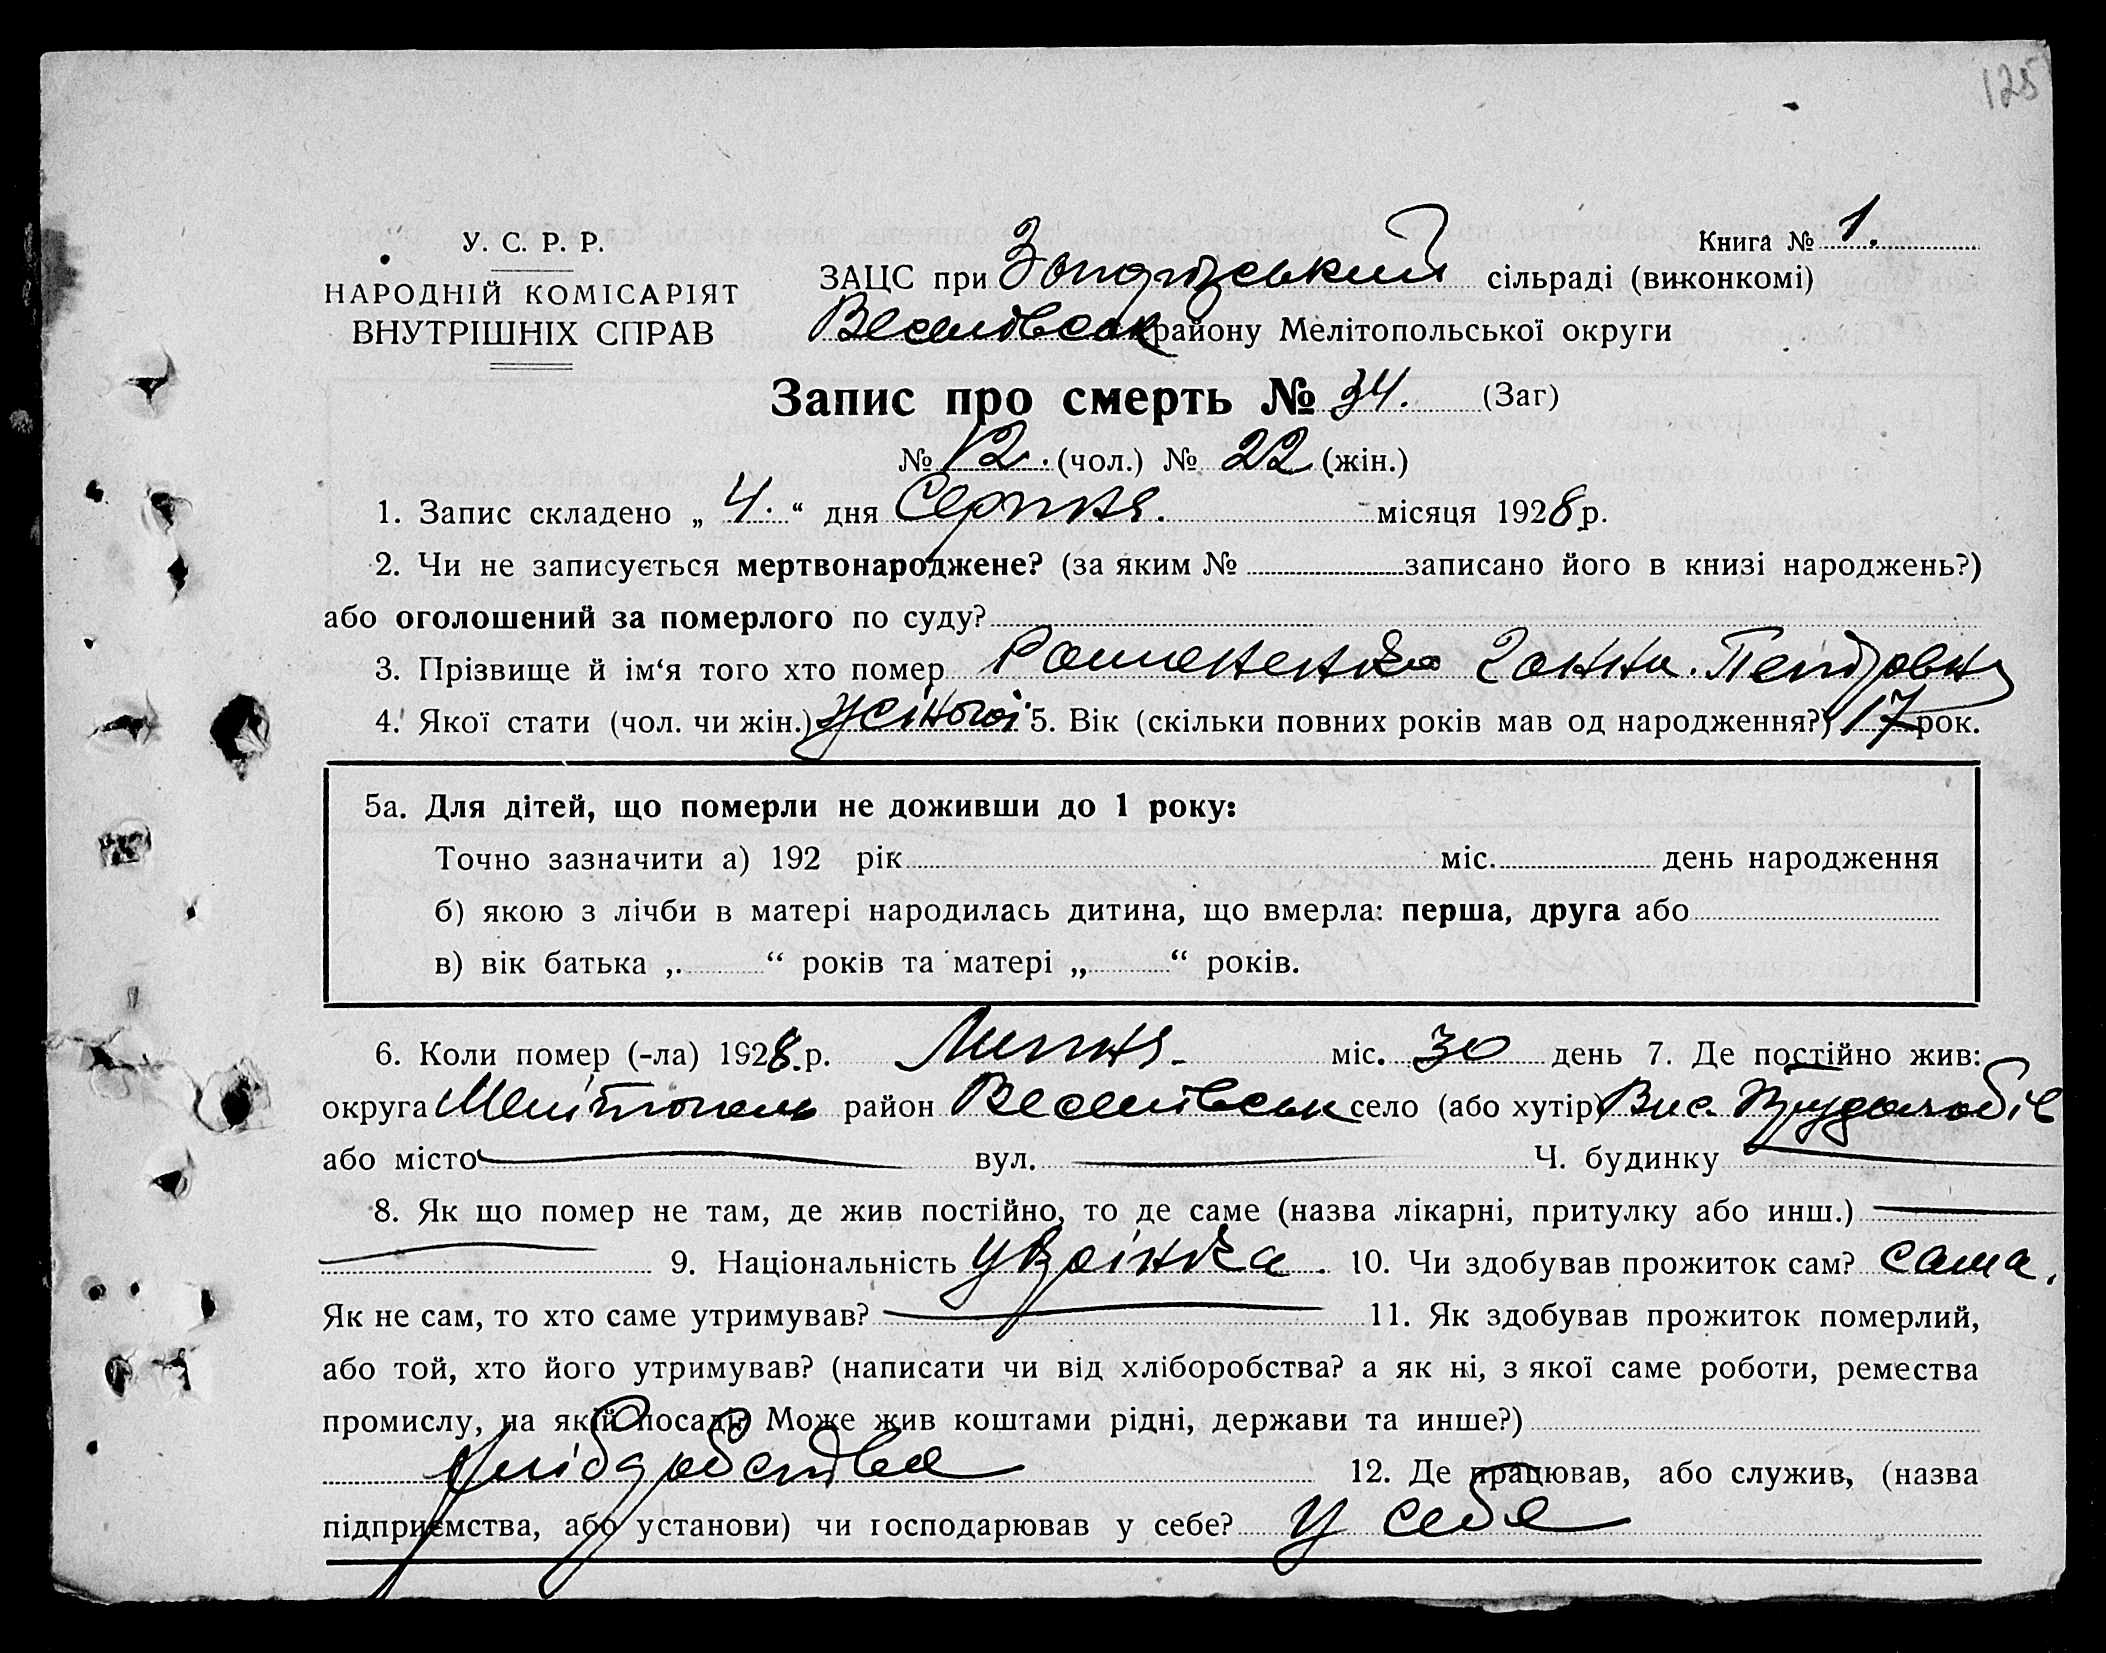 125
У. С. Р. Р.
НАРОДНІЙ КОМІСАРІЯТ
ВНУТРІШНІХ СПРАВ
Книга № 1.
ЗАЦС при сільраді (виконкомі)
Веселівськ району Мелітопольської округи
Запис про смерть № 34. (Заг)
№ 12. (чол.) № 22 (жін.)
1. Запис складено „ 4. “ дня Серпня. місяця 1928 р.
2. Чи не записується мертвонароджене? (за яким № записано його в книзі народжень?)
або оголошений за померлого по суду?
3. Прізвище й ім‘я того хто помер Ганна. Петровна
4. Якої стати (чол. чи жін.) жіночої 5. Вік (скільки повних років мав од народження?) 17 рок.
5а. Для дітей, що померли не доживши до 1 року:
Точно зазначити а) 192 рік міс. день народження
б) якою з лічби в матері народилась дитина, що вмерла: перша, друга або
в) вік батька „ “ років та матері „ “ років.
6. Коли помер (-ла) 1928. р. Липня міс. 30 день 7. Де постійно жив:
округа Мелітополь район Веселівськ село (або хутір) Вис. Трудолюбів
або місто вул. Ч. будинку
8. Як що помер не там, де жив постійно, то де саме (назва лікарні, притулку або инш.)
9. Національність україинка. 10. Чи здобував прожиток сам? сама.
Як не сам, то хто саме утримував? 11. Як здобував прожиток померлий,
або той, хто його утримував? (написати чи від хліборобства? а як ні, з якої саме роботи, ремества
промислу, на якій посаді? Може жив коштами рідні, держави та инше?)
хліборобства 12. Де працював, або служив, (назва
підприємства, або установи) чи господарював у себе? у себе